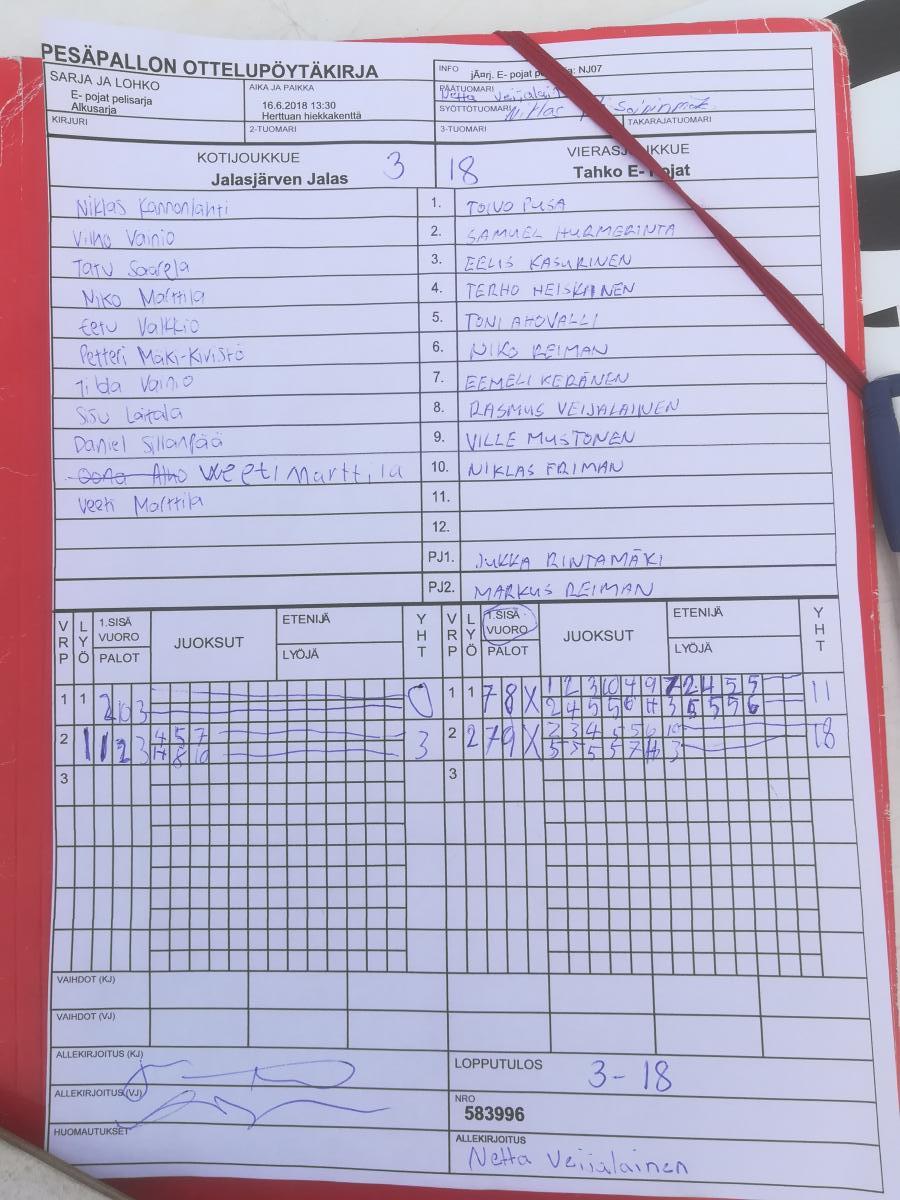 PESÄPALLON OTTELUPÖYTÄKIRJA
SARJA JA LOHKO
E- pojat pelisarja
Alkusarja
AIKA JA PAIKKA
16.6.2018 13:30
Herttuan hiekkakenttä
INFO
jÄrj. E- pojat NJ07
PÄÄTUOMARI
Netta
SYÖTTÖTUOMARI
Niklas
KIRJURI
2-TUOMARI
3-TUOMARI
TAKARAJATUOMARI
KOTIJOUKKUE
Jalasjärven Jalas
3
18
Tahko E-
Niklas Kannonlahti 1. TOIVO PUSA
Vilho Vainio 2. SAMUEL HURMERINTA
Tatu Saarela 3. EELIS KASURINEN
Niko Marttila 4. TERHO HEISKANEN
Eetu Valkkio 5. TONI AHOVALLI
Petteri Mäki-Kivistö 6. NIKO REIMAN
Tilda Vainio 7. EEMELI KERÄNEN
Sisu Laitala 8. RASMUS VEIJALAINEN
Daniel Sillanpää 9. VILLE MUSTONEN
Weeti Marttila 10. NIKLAS FRIMAN
Veeti Marttila 11.
12.
PJ1. JUKKA RINTAMÄKI
PJ2. MARKUS REIMAN
VRP LYÖ 1.SISÄ VUORO PALOT JUOKSUT ETENIJÄ LYÖJÄ YHT VRP LYÖ 1.SISÄ VUORO PALOT JUOKSUT ETENIJÄ LYÖJÄ YHT
1 1 2 10 3 0 1 1 7 8 X 1 2 3 10 4 9 7 2 4 5 5 11
2 4 5 5 6 H 3 5 5 5 6
2 1 1 2 3 4 5 7 3 2 2 7 9 X 2 3 4 5 5 6 10 18
H 8 10 5 5 5 5 7 H 3
3 3
VAIHDOT (KJ)
VAIHDOT (VJ)
ALLEKIRJOITUS (KJ)
LOPPUTULOS
3-18
ALLEKIRJOITUS (VJ)
NRO
583996
HUOMAUTUKSET
ALLEKIRJOITUS
Netta Veijalainen